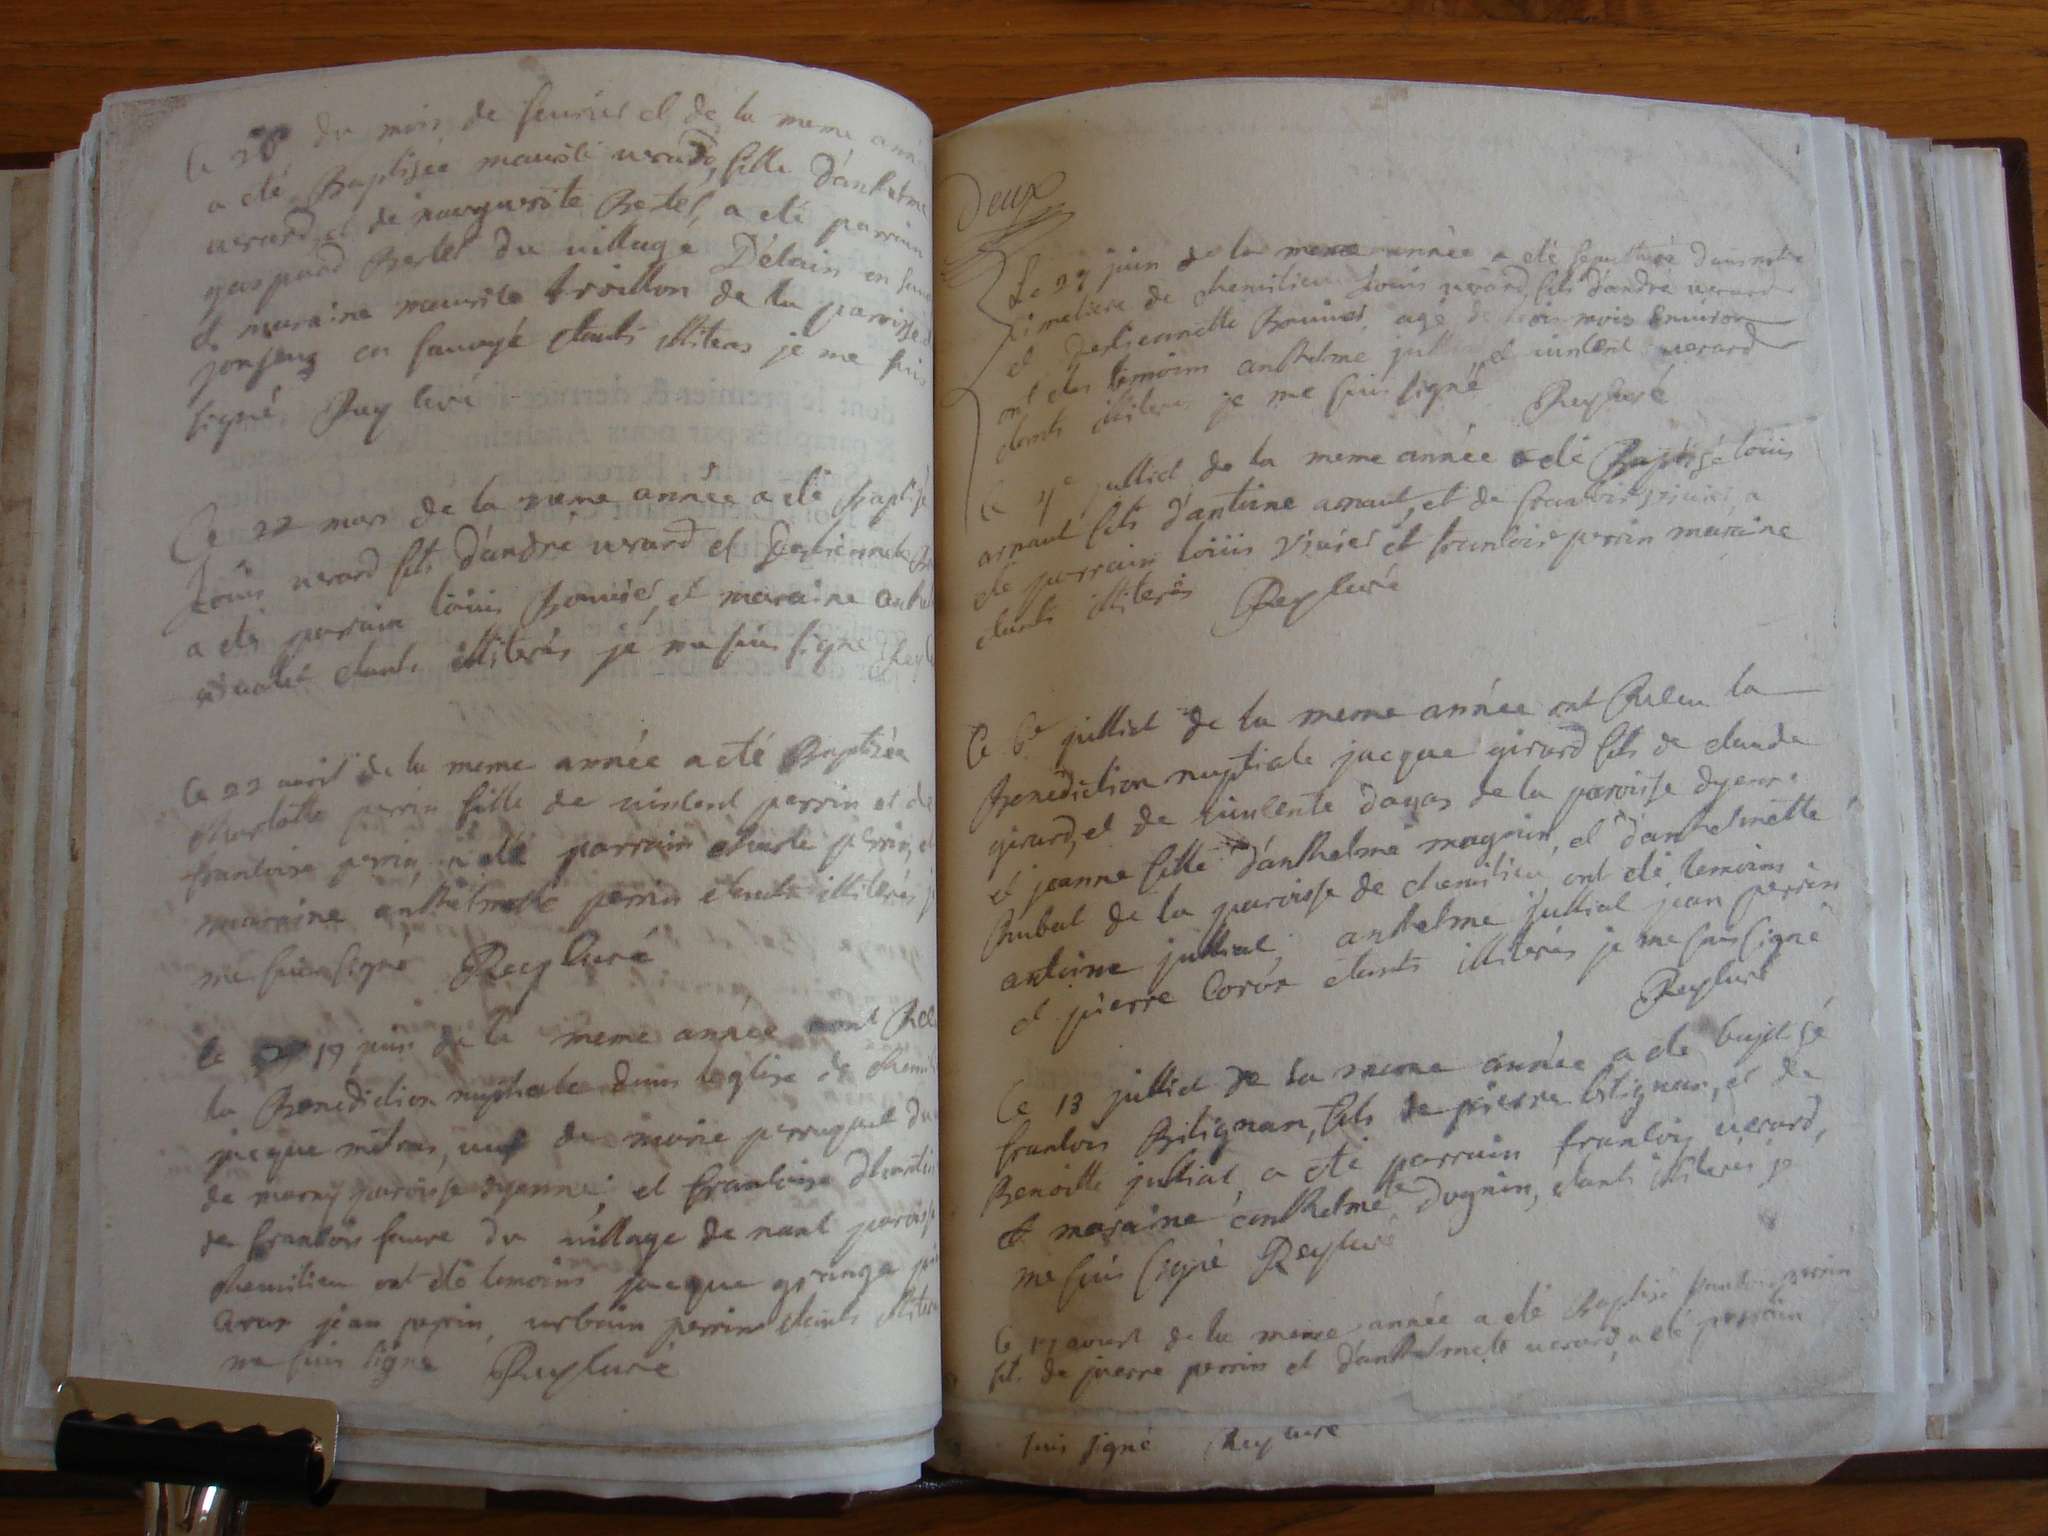 Le 28 du mois de feuvrier et de la meme anné
a eté Baptisée maurise uerard, fille d'anthelme
uerard, et de marguerite Bertet, a eté parrain
gaspard Bertet du village D'étain en sauo
et maraine maurise troillon de la paroisse d
jonjeuz en sauoye etants illiteres je me suis
signé Reyluré
Ce 22 mars de la meme année a eté Baptisé
Louis uerard fils d'andré uerard et Destiennete
a eté parrain louis Bouvier, et maraine
etants illiterés je me suis signé
Ce 22 auril de la meme année a eté Baptisée
charlotte perrin fille de uincent perrin et de
francoise perrin, a eté parrain charle perrin, et
maraine anthelmette perrin etants illiterés j
me suis signé Reyluré
le 19 juin de la meme année ont
la Benediction nuptiale dans leglise de chemili
jacque metras, ueuf de marie perruquet du
de marny paroisse dyenne et francoise
de francois faure du uillage de nant paroisse
chemilieu ont eté temoins jacque grange
jean perrin, urbain perrin etants illiteres
me suis signé Reyluré
Deux
Le 27 juin de la meme année a eté sepulturé dans notre
cimetiere de chemilieu louis uerard fils d'andré uerard
et Destiennette Bouvier agé de trois mois enuiron
ont eté temoins anthelme julliat et uincent uerard
etants illiteres je me suis signé Reyluré
Ce 4e julliet de la meme année a eté Baptisé louis
arnaut fils d'antoine arnaut, et de francoise viuier, a
eté parrain louis viuier et francoise perrin maraine
etants illiterés Reyluré
Ce 6e julliet de la meme année ont Receu la
Benediction nuptiale jacque girard fils de claude
girard, et de uincente dagas de la paroisse dyenne
et jeanne fille d'anthelme magnin, et d'anthelmette
Bubat de la paroisse de chemilieu, ont eté temoins
antoine julliat, anthelme julliat jean perrin
et pierre etants illiterés je me suis signé
Reyluré
Ce 13 julliet de la meme année a eté baptisé
francois Bilignan, fils de pierre bilignan, et de
Benoitte julliat a eté parrain francois uerard,
et maraine anthelmete dugnin, etants illiterés je
me suis signé Reyluré
Ce 17 aoust de la meme année a eté Baptisé perrin
fils de pierre perrin et d'anthelmete uerard, a eté parrain
suis signé Reyluré